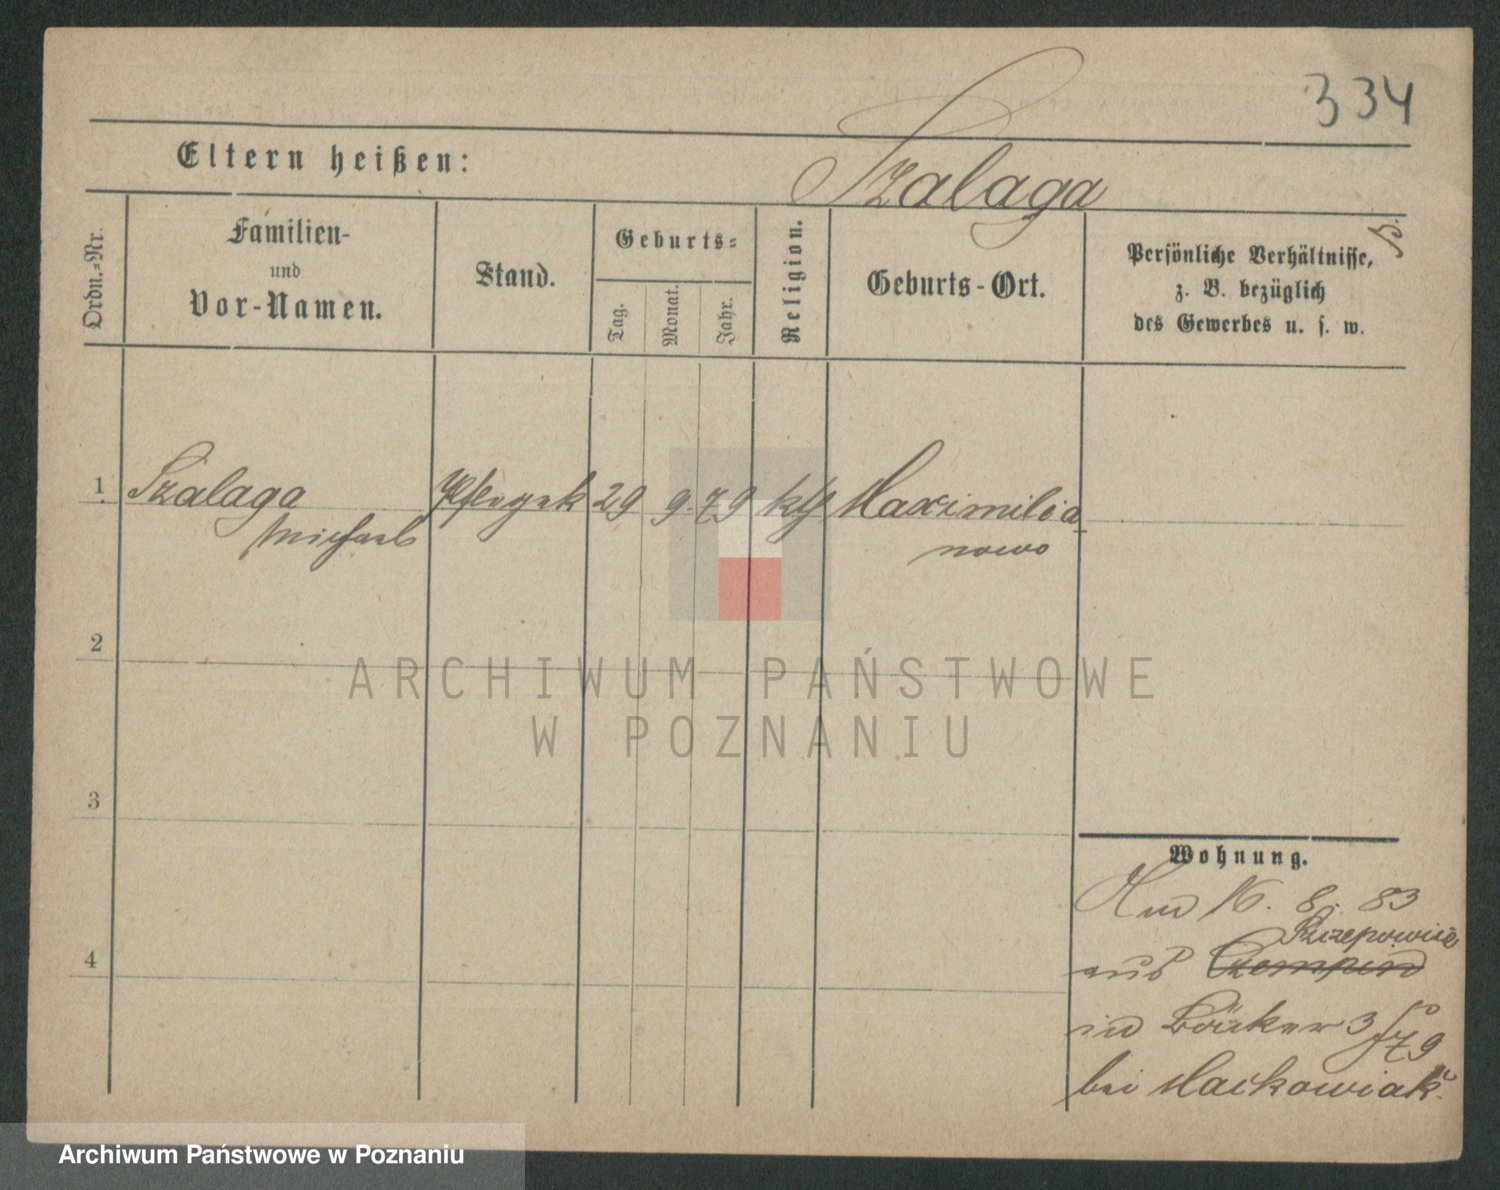 334
Eltern heißen:
Szalaga
Ordn.=Nr.
Familien-
und
Vor-Namen.
Stand.
Geburts=
Tag.
Monat.
Jahr.
Religion.
Geburts-Ort.
Persönliche Verhältnisse,
z. B. bezüglich
des Gewerbes u. s. w.
1 Szalaga 29 9. 79 kth Maximilia
Michael nowo
2
ARCHIWUM PAŃSTWOWE
W POZNANIU
3
Wohnung.
16. 8. 83
4
aus Czempin
in Bäcker 3
79
bei Maćkowiak.
Archiwum Państwowe w Poznaniu